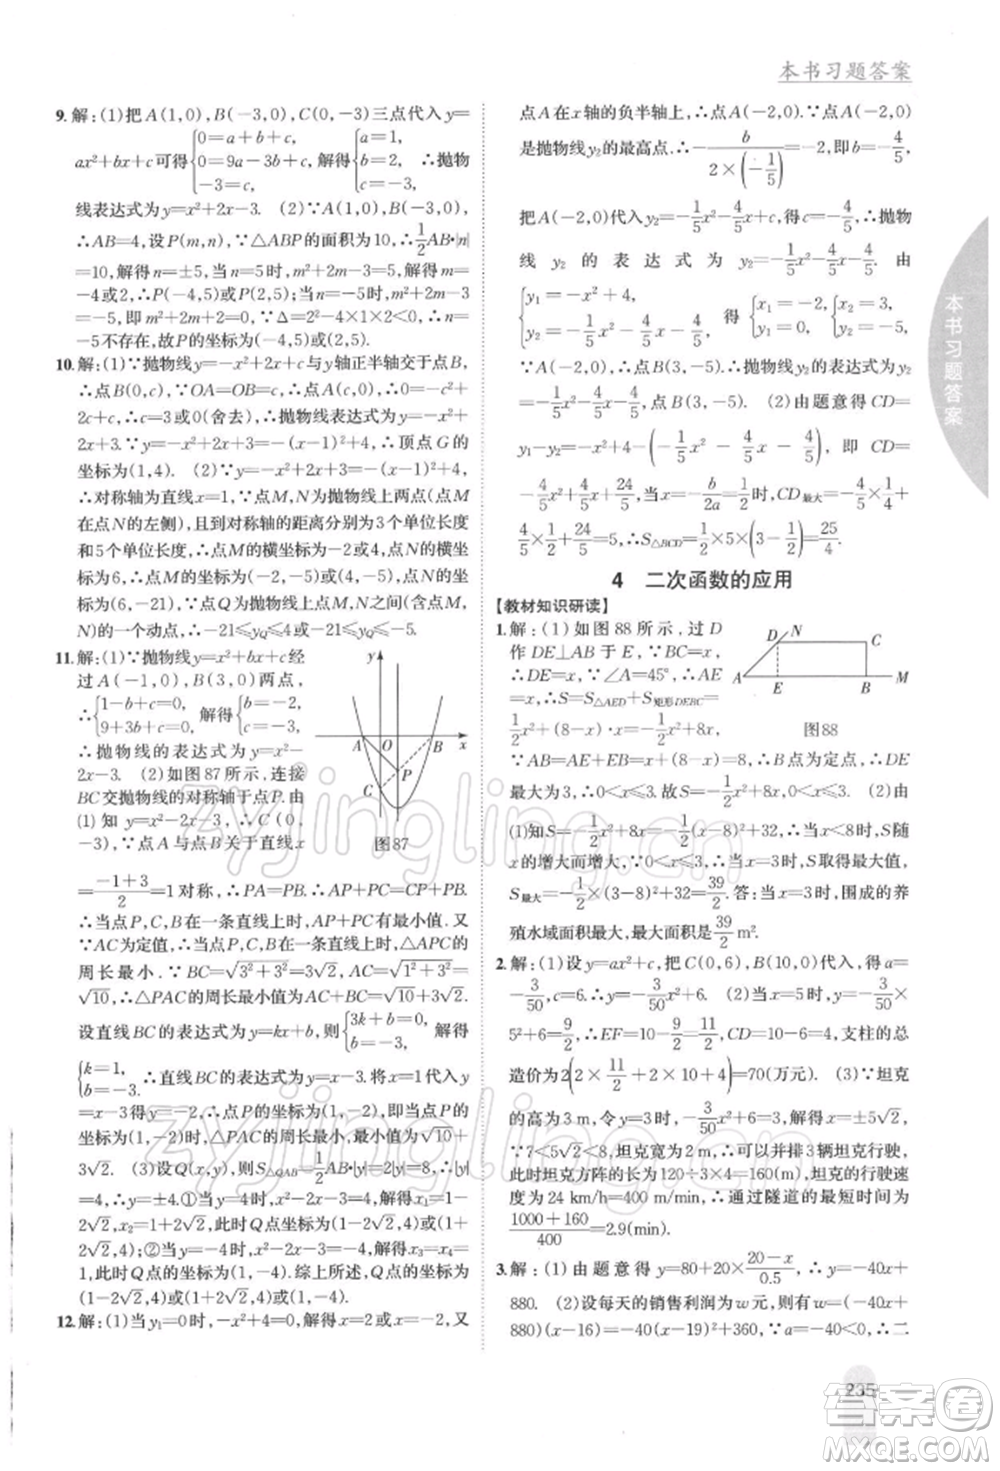 本书习题答案
9.解:(1)把A(1,0),B(-3,0),C(0,-3)三点代入y=
ax²+bx+c可得{0=a+b+c, 0=9a-3b+c, -3=c, 解得{a=1, b=2, c=-3, ∴抛物
线表达式为y=x²+2x-3. (2)∵A(1,0),B(-3,0),
∴AB=4,设P(m,n),∵△ABP的面积为10,∴1/2AB·|n|
=10,解得n=±5,当n=5时,m²+2m-3=5,解得m=
-4或2,∴P(-4,5)或(2,5);当n=-5时,m²+2m-3=
-5,即m²+2m+2=0,∵Δ=2²-4×1×2=-4<0,∴n=
-5不存在,故P(-4,5)或(2,5).
10.解:(1)∵抛物线y=-x²+2x+c与y轴正半轴交于点B,
∴点B(0,c),∵OA=OB=c,∴A(c,0),∴0=-c²+
2c+c,∴c=3或0(舍去),∴抛物线表达式为y=-x²+
2x+3,∵y=-x²+2x+3=-(x-1)²+4,∴顶点G为
(1,4). (2)∵y=-x²+2x+3=-(x-1)²+4,
∴对称轴为直线x=1,∵点M,N为抛物线上两点(点M
在点N的左侧),且到对称轴的距离分别为3个单位长度
和5个单位长度,∴点M的横坐标为-2或4,点N的横
坐标为6,∴点M坐标为(-2,-5)或(4,-5),点N坐
标为(6,-21),∵点Q为抛物线上点M,N之间(含点M,
N)的一个动点,∴-21≤y_Q≤4或-21≤y_Q≤-5.
11.解:(1)∵抛物线y=x²+bx+c经
过A(-1,0),B(3,0)两点,
∴{1-b+c=0, 9+3b+c=0, 解得{b=-2, c=-3,
∴抛物线的表达式为y=x²-
2x-3. (2)如图87所示,连接
BC交抛物线的对称轴于点P.由
(1)知y=x²-2x-3,∴C(0,
-3).∵点A与点B关于直线x
y
A O B x
P
C
图87
=(-1+3)/2=1对称,∴PA=PB.∴PA+PC=CP+PB.
∴当点P,C,B在一条直线上时,AP+PC有最小值.又
∵AC为定值,∴当点P,C,B在一条直线上时,△APC的
周长最小.∵BC=√(3²+3²)=3√2,AC=√(1²+3²)=
√10,∴△PAC的周长最小值为AC+BC=3√2+√10.
设直线BC的表达式为y=kx+b,则{3k+b=0, b=-3, 解得
{k=1, b=-3, ∴直线BC的表达式为y=x-3.将x=1代入y=
x-3得y=-2,∴点P的坐标为(1,-2),∴点P的坐标为
(1,-2)时,△PAC的周长最小,最小值为√10+
3√2. (3)设Q(x,y),则S△QAB=1/2AB·|y|=2|y|=8,|y|=4,
∴y=±4.①当y=4时,x²-2x-3=4,解得x₁=1-
2√2,x₂=1+2√2,此时Q点坐标为(1-2√2,4)或(1+
2√2,4);②当y=-4时,x²-2x-3=-4,解得x₃=x₄=
1,此时Q点的坐标为(1,-4).综上所述,Q点坐标为(1-
2√2,4)或(1+2√2,4)或(1,-4).
12.解:(1)当y₁=0时,-x²+4=0,解得x=2或x=-2,又
点A在x轴的负半轴上,∴点A(-2,0).∵点A(-2,0)
是抛物线y₂的最高点.∴-b/(2×(-1/5))=-2,即b=-4/5,
把A(-2,0)代入y₂=-1/5x²-4/5x+c,得c=-4/5,∴抛物
线y₂的表达式为y₂=-1/5x²-4/5x-4/5.由
{y₁=-x²+4, y₂=-1/5x²-4/5x-4/5, 得{x₁=-2, y₁=0, {x₂=3, y₂=-5,
∵A(-2,0),∴点B(3,-5). (2)由题意得CD=
y₁-y₂=-x²+4-(-1/5x²-4/5x-4/5),即CD=
-4/5x²+4/5x+24/5,当x=-b/2a=1/2时,CD最大=-4/5×1/4+
4/5×1/2+24/5=5,∴S△BCD=1/2×5×(3-1/2)=25/4.
4 二次函数的应用
【教材知识研读】
1.解:(1)如图88所示,过D
作DE⊥AB于E,∵DC=x,
∴DE=x.∵∠A=45°,∴AE
=x,∴S=S△AED+S矩形DEBC=
1/2x²+(8-x)·x=-1/2x²+8x,
D N C
A E B M
图88
∵AB=AE+EB=DE+DC=x+(8-x)=8,∴DE
最大为3,∴0<x≤3.故S=-1/2x²+8x(0<x≤3). (2)由
(1)知S=-1/2x²+8x=-1/2(x-8)²+32,∴当x<8时,S随
x的增大而增大,∵0<x≤3,∴当x=3时,S取得最大值,
S最大=-1/2×(3-8)²+32=39/2.答:当x=3时,围成的养
殖水域面积最大,最大面积为39/2m².
2.解:(1)设y=ax²+c,把C(0,6),B(10,0)代入,得a=
-3/50,c=6.∴y=-3/50x²+6. (2)当x=5时,y=-3/50×
5²+6=9/2,∴EF=10-9/2=11/2,CD=10-6=4,支柱的总
造价为2(2×11/2+2×10+4)=70(万元). (3)∵坦克
的高为3m,令y=3时,-3/50x²+6=3,解得x=±5√2,
∵7<5√2<8,坦克宽为2m,∴可以并排3辆坦克行驶,
此时坦克方阵的长为120÷3×4=160(m),坦克的速度
为24 km/h=400 m/min,∴通过隧道的最短时间为
(1000+160)/400=2.9(min).
3.解:(1)由题意得y=80+20×(20-x)/0.5,∴y=-40x+
880. (2)设每天的销售利润为w元,则w=(-40x+
880)(x-16)=-40(x-19)²+360,∵a=-40<0,∴二
本书习题答案
235
zyjingling.cn
zyjingling.cn
答案圈
MXQE.COM